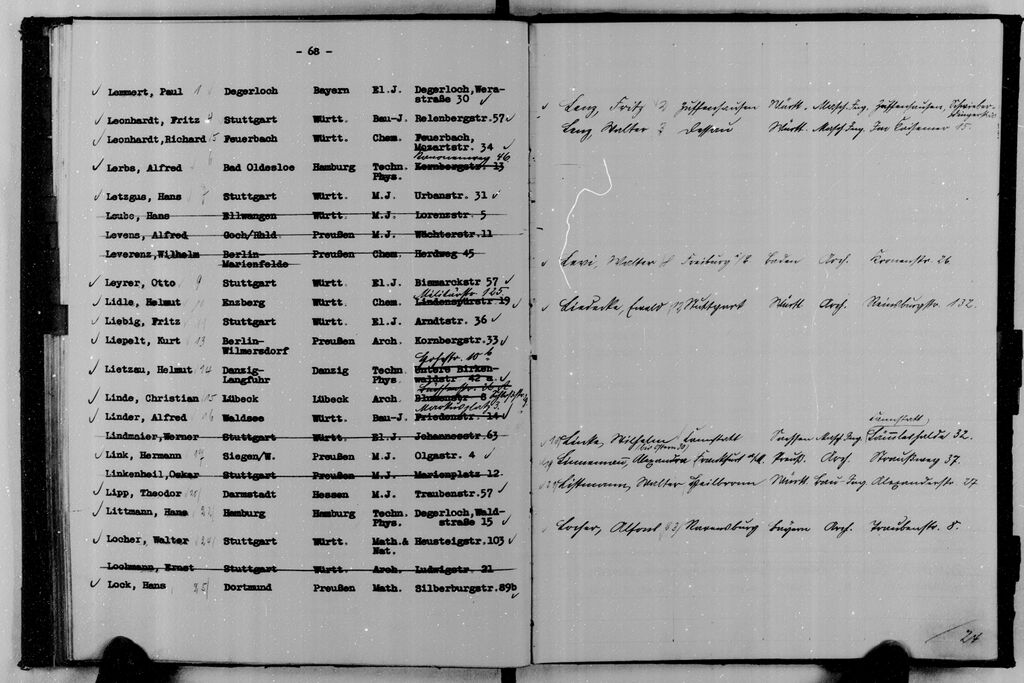 - 68 -
Lemmert, Paul 1 Degerloch Bayern El.J. Degerloch, Wera-
straße 30
Leonhardt, Fritz 4 Stuttgart Württ. Bau-J. Relenbergstr.57
Leonhardt, Richard 5 Feuerbach Württ. Chem. Feuerbach,
Mozartstr. 34
46
Lerbs, Alfred 6 Bad Oldesloe Hamburg Techn. Kornbergstr. 13
Phys.
Letzgus, Hans 7 Stuttgart Württ. M.J. Urbanstr. 31
Leube, Hans Ellwangen Württ. M.J. Lorenzstr. 5
Levens, Alfred Goch/Rhld Preußen M.J. Wächterstr.11
Leverenz, Wilhelm Berlin- Preußen Chem. Herdweg 45
Marienfelde
Leyrer, Otto 9 Stuttgart Württ. El.J. Bismarckstr 57
Militärstr. 125
Lidle, Helmut 10 Ensberg Württ. Chem. Lindenspürstr 19
Liebig, Fritz 11 Stuttgart Württ. El.J. Arndtstr. 36
Liepelt, Kurt 13 Berlin- Preußen Arch. Kornbergstr.33
Wilmersdorf
10 b
Lietzau, Helmut 14 Danzig- Danzig Techn. Untere Birken-
Langfuhr Phys. waldstr 42 a
Linde, Christian 15 Lübeck Lübeck Arch. Blumenstr 8
Markusplatz 3.
Linder, Alfred 16 Waldsee Württ. Bau-J. Friedenstr. 14
Lindmaier, Werner Stuttgart Württ. El.J. Johannesstr. 63
Link, Hermann 19 Siegen/W. Preußen M.J. Olgastr. 4
Linkenheil, Oskar Stuttgart Preußen M.J. Marienplatz 12
Lipp, Theodor 20 Darmstadt Hessen M.J. Traubenstr.57
Littmann, Hans 22 Hamburg Hamburg Techn. Degerloch, Wald-
Phys. straße 15
Locher, Walter 24 Stuttgart Württ. Math.& Heusteigstr.103
Nat.
Lochmann, Ernst Stuttgart Württ. Arch. Ludwigstr. 21
Lock, Hans 25 Dortmund Preußen Math. Silberburgstr.89b
Lenz, Fritz 2 Zuffenhausen Württ. Masch. Ing. Zuffenhausen,
Lenz Walter 3 Dessau Württ. Masch Ing. Im Kaisemer 15.
Levi, Walter 8 Freiburg i/B Baden Arch. Kronenstr. 26
Liedecke, Ewald 12 Stuttgart Württ Arch. Reinsburgstr. 132.
Cannstatt,
Linke, Wilhelm Cannstatt Sachsen Masch. Ing. 32.
Linnemann, Alexandra Frankfurt a/M. Preuß. Arch. Straußweg 37.
Listmann, Walter Heilbronn Württ. Bau-Ing Alexanderstr. 27
Locher, Alfons 23 Ravensburg Bayern Arch. Traubenstr. 8.
24